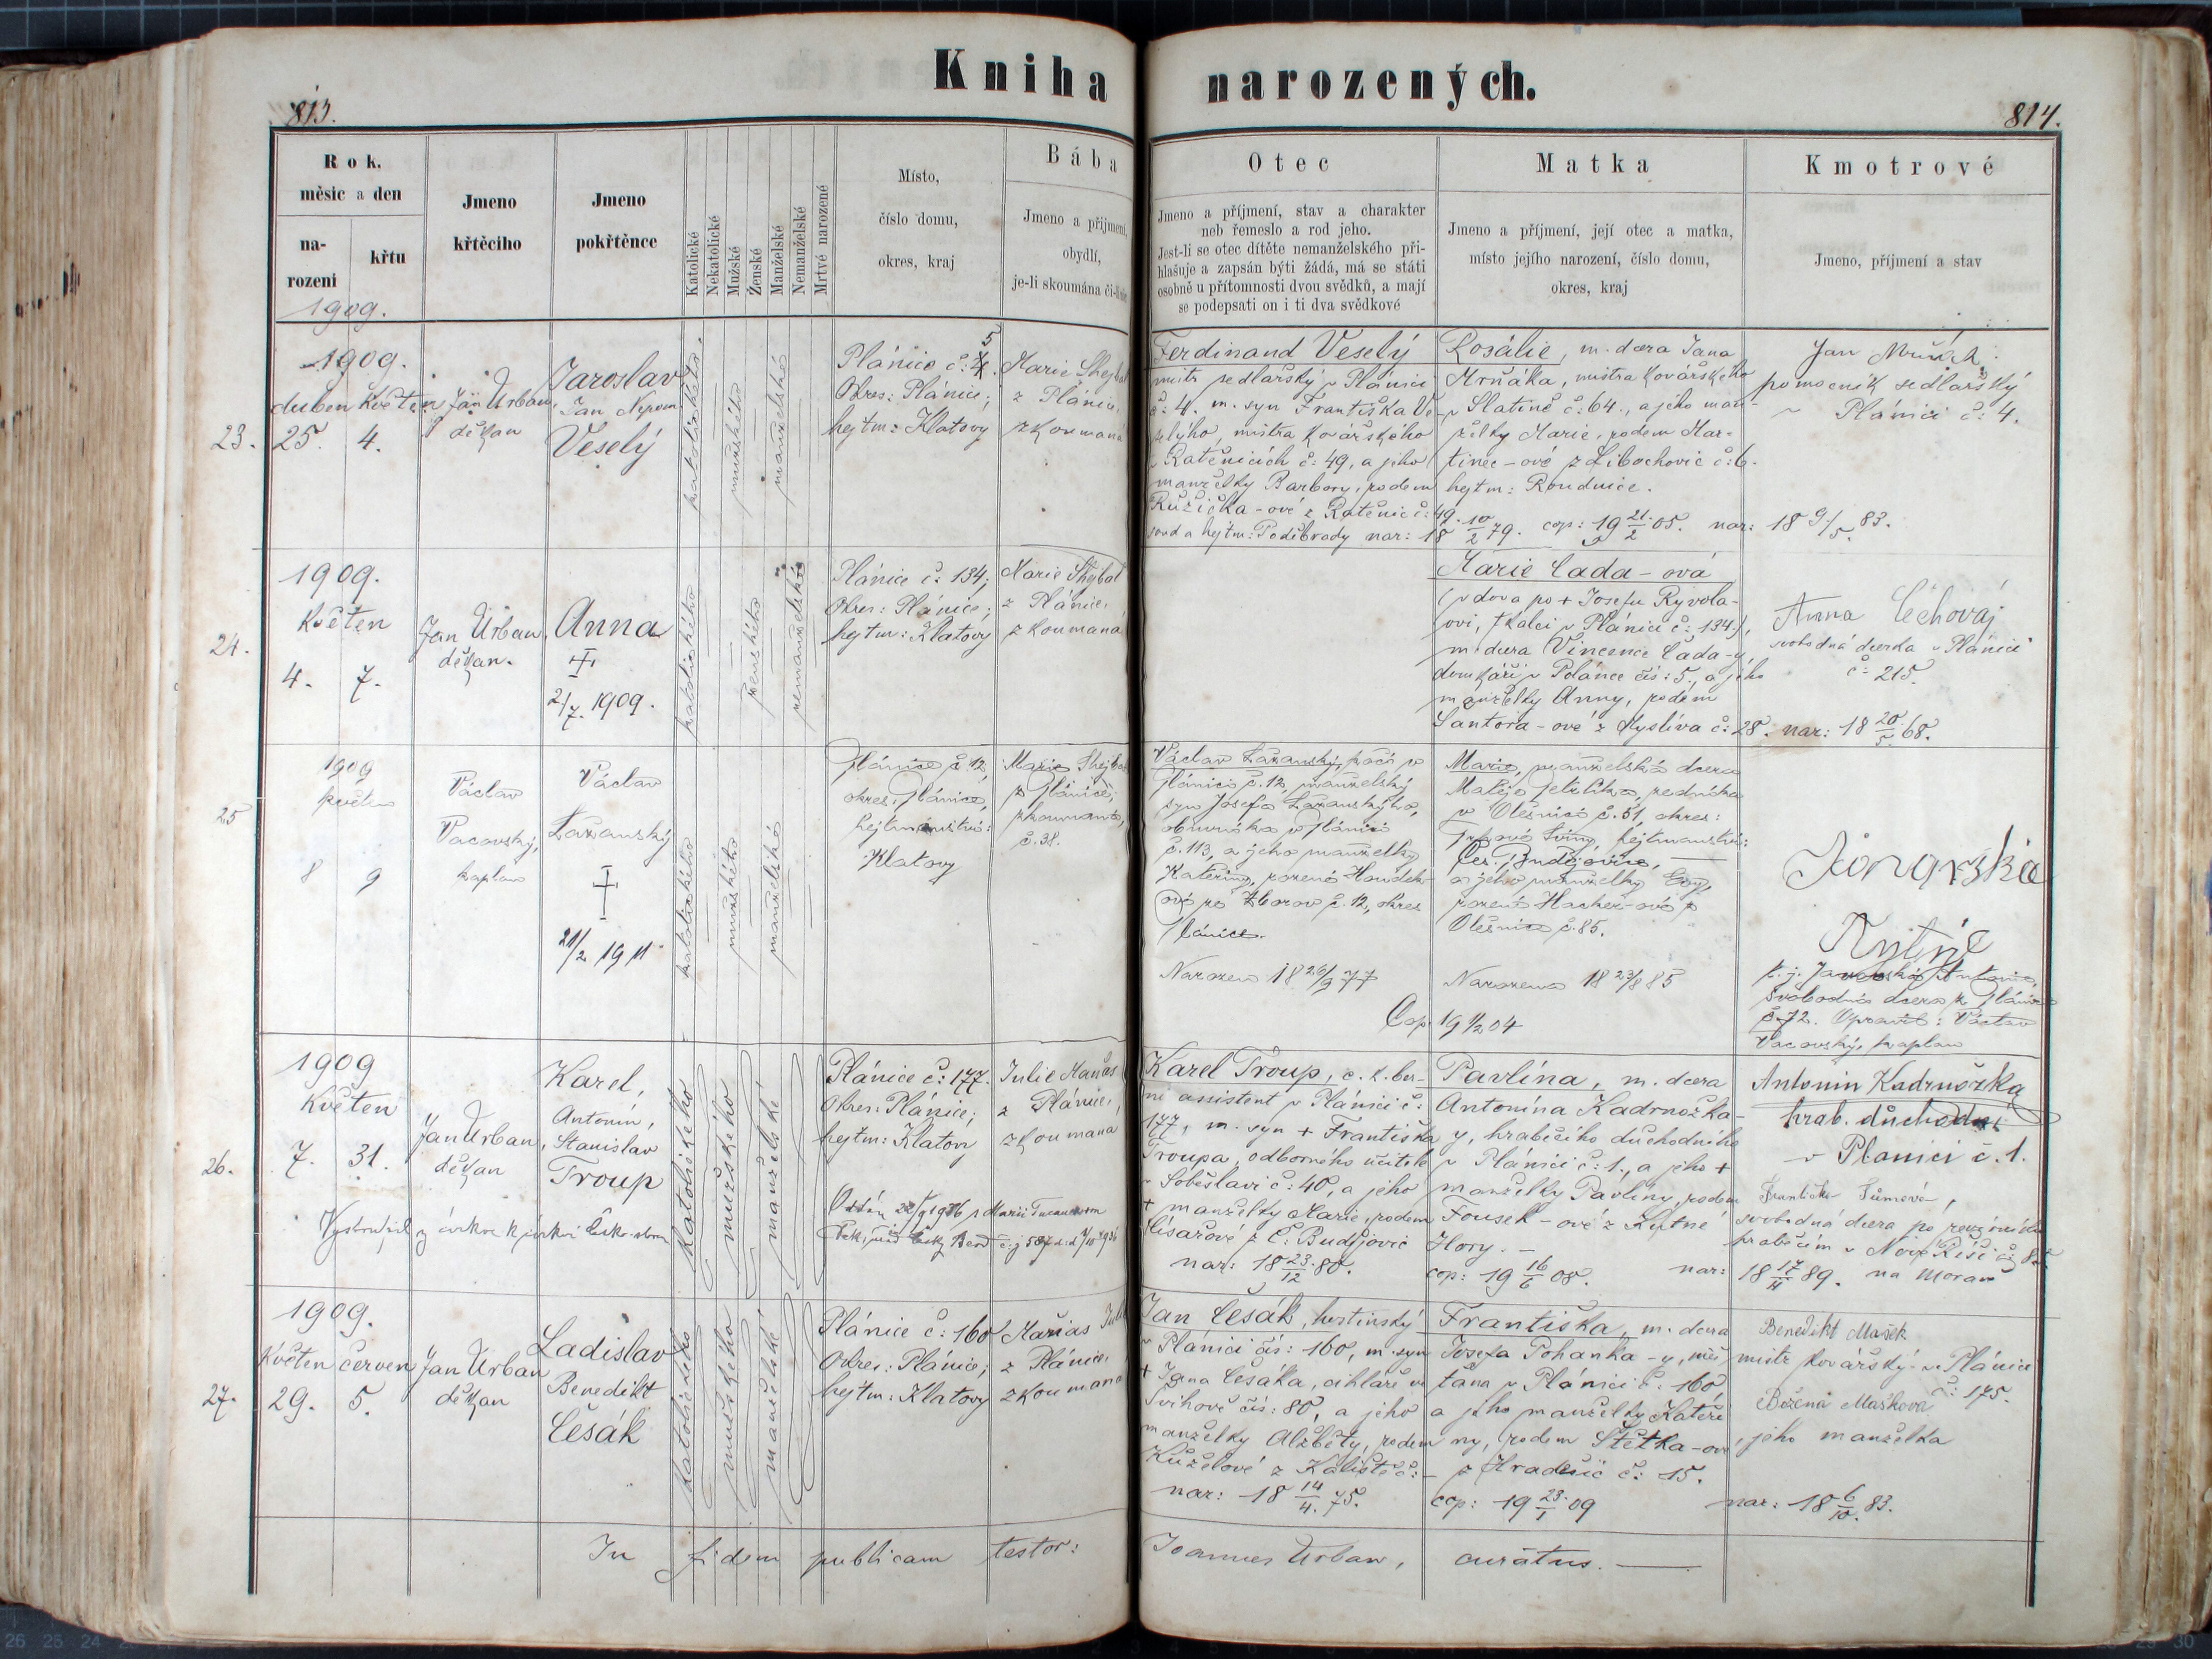 Kniha narozených.
813.
814.
Rok, měsíc a den
narození
křtu
1909.
Jmeno křtěcího
Jmeno pokřtěnce
Katolické
Nekatolické
Mužské
Ženské
Manželské
Nemanželské
Mrtvé narozené
Místo,
číslo domu,
okres, kraj
Bába
Jmeno a přijmení,
obydlí,
je-li skoumána či-li nic
Otec
Jmeno a příjmení, stav a charakter
neb řemeslo a rod jeho.
Jest-li se otec dítěte nemanželského při-
hlašuje a zapsán býti žádá, má se státi
osobně u přítomnosti dvou svědků, a mají
se podepsati on i ti dva svědkové
Matka
Jmeno a příjmení, její otec a matka,
místo jejího narození, číslo domu,
okres, kraj
Kmotrové
Jmeno, příjmení a stav
23.
1909.
duben květen
25. 4.
Jan Urban,
děkan
Jaroslav
Jan Nepom.
Veselý
katolického
mužského
manželské
Plánice č: 4. 5
Okres: Plánice;
hejtm: Klatovy
Marie Shejbal
z Plánice,
zkoumaná
Ferdinand Veselý
mistr sedlařský v Plánici
č: 4. m. syn Františka Ve-
selýho, mistra kovářského
v Ratěnicích č: 49, a jeho
manželky Barbory, rodem
Růžička-ové z Ratěnic č: 49.
soud a hejtm: Poděbrady nar: 18 10/2 79.
Rosálie, m. dcera Jana
Mrňáka, mistra kovářského
v Slatině č: 64., a jeho man-
želky Marie, rodem Mar-
tinec-ové z Libochovic č: 6.
hejtm: Roudnice.
cop: 19 21/2 05. nar: 18 9/5 83.
Jan
pomocník sedlařský
v Plánici č: 4.
24.
1909.
květen
4. 7.
Jan Urban,
děkan.
Anna
2/7. 1909.
katolického
ženského
nemanželské
Plánice č: 134;
Okres: Plánice;
hejtm: Klatovy
Marie Shejbal
z Plánice,
zkoumaná
Marie Cada-ová
(vdova po + Josefu Ryvola-
ovi, tkalci v Plánici č: 134.),
m. dcera Vincence Cada-y,
domkáři v Polánce čís: 5., a jeho
manželky Anny, rodem
Santora-ové z Myslíva č: 28. nar: 18 20/5 68.
Anna Čechova
svobodná dcerka v Plánici
č: 215.
25
1909
květen
8 9
Václav
Vacovský,
kaplan
Václav
Lažanský
21/2 1911
katolického
mužského
manželské
Plánice č. 12,
okres: Plánice,
hejtmanství:
Klatovy
Marie Shejbal
z Plánice,
zkoumaná,
č. 38.
Václav Lažanský, v
Plánici č. 12, manželský
syn Josefa Lažanskýho,
obuvníka v Plánici
č. 113, a jeho manželky
Kateřiny, rozené
ové ze Zborov č. 12, okres
Plánice.
Narozen 18 26/9 77
Cop. 19 1/2 04
Marie, manželská dcera
Matěje Jetelíka, zedníka
v Olešnici č. 51, okres:
Trhové Sviny, hejtmanství:
Čes. Budějovice,
a jeho manželky Evy,
rozené Hacker-ové z
Olešnice č. 85.
Narozena 18 23/8 85
t. j. Antonie,
svobodná dcera z Plánice
č. 72. Opravil: Václav
Vacovský, kaplan
26.
1909
květen
7. 31.
Jan Urban,
děkan
Karel,
Antonín,
Stanislav
Troup
Vystoupil z církve k církvi česko-slov.
katolického
mužského
manželské
Plánice č: 177.
Okres: Plánice;
hejtm: Klatovy
Julie Maňas
z Plánice,
zkoumaná
Karel Troup, c. k. ber-
ní assistent v Plánici č:
177, m. syn + Františka
Troupa, odborného učitele
v Soběslavi č: 40, a jeho
+ manželky Marie, rodem
Císařové z Č. Budějovic
nar: 18 23/12 80.
Pavlína, m. dcera
Antonína Kadrnožka-
y, hraběcího důchodního
v Plánici č: 1., a jeho +
manželky Pavlíny, rodem
Fousek-ové z Kutné
Hory. -
cop: 19 16/6 08. nar: 18 17/4 89.
Antonín Kadrnožka
hrab. důchodní
v Plánici č. 1.
Františka Tůmová,
svobodná dcera po revírníku
hraběcím v Nové Říši
na Moravě
27.
1909.
květen červen
29. 5.
Jan Urban
děkan
Ladislav
Benedikt
Česák
katolického
mužského
manželské
Plánice č: 160
Okres: Plánice;
hejtm: Klatovy
Maňas Julie
z Plánice,
zkoumaná
Jan Česák, hostinský
v Plánici čís: 160, m. syn
+ Jana Česáka, cihláře ve
Švihově čís: 80, a jeho
manželky Alžběty, rodem
Kuželové z Kaliště č: -
nar: 18 14/4. 75.
Františka, m. dcera
Josefa Pohanka-y, měš-
ťana v Plánici č: 160,
a jeho manželky Kateři-
ny, rodem Štětka-ové
z Hradešic č: 15.
cop: 19 23/1 09 nar: 18 6/10. 83.
Benedikt Mašek
mistr kovářský v Plánici
č: 175.
Božena Mašková
jeho manželka
In fidem publicam testor: Joannes Urban, curatus.